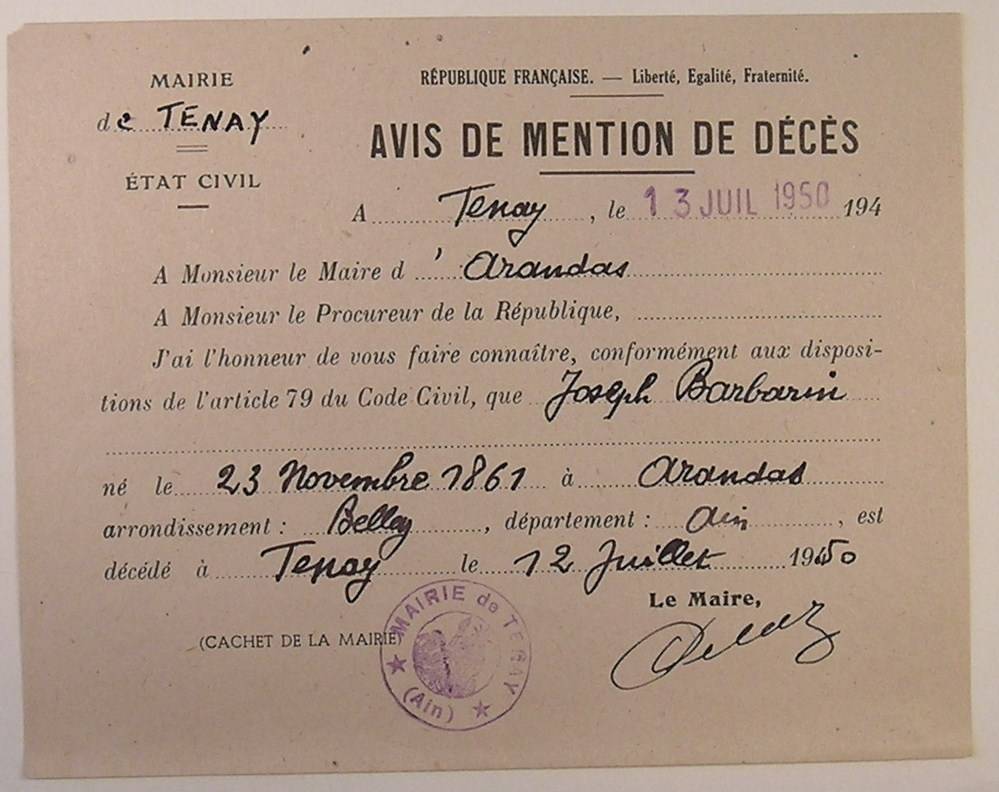 MAIRIE
de TENAY
ÉTAT CIVIL
RÉPUBLIQUE FRANÇAISE. — Liberté, Egalité, Fraternité.
AVIS DE MENTION DE DÉCÈS
A Tenay, le 13 JUIL 1950 194
A Monsieur le Maire d'Arandas
A Monsieur le Procureur de la République,
J'ai l'honneur de vous faire connaître, conformément aux disposi-
tions de l'article 79 du Code Civil, que Joseph Barbarin
né le 23 Novembre 1861 à Arandas
arrondissement : Belley, département : Ain, est
décédé à Tenay le 12 Juillet 1950
Le Maire,
(CACHET DE LA MAIRIE)
MAIRIE de TENAY
(Ain)